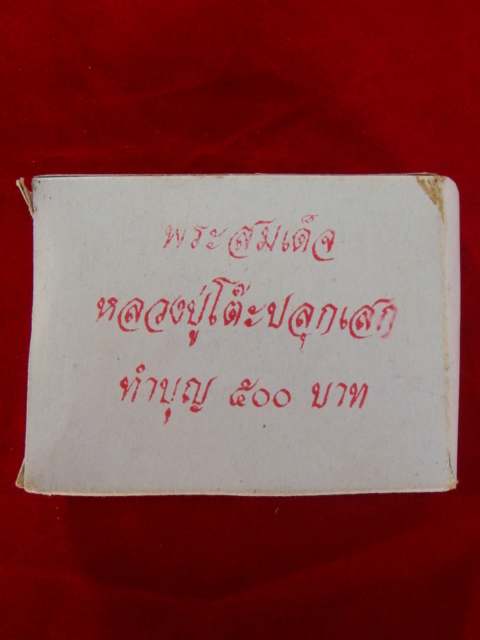 พระสมเด็จ
หลวงปู่โต๊ะปลุกเสก
ทำบุญ ๕๐๐ บาท